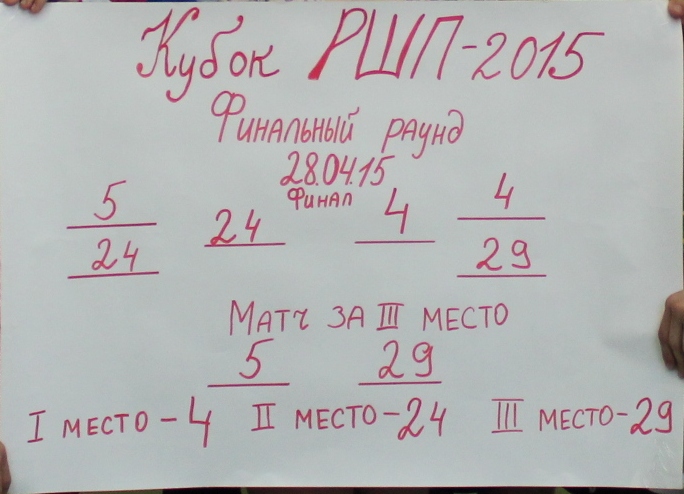 Кубок РШП-2015
Финальный раунд
28.04.15
Финал
5
24
24
4
4
29
Матч за III место
5 29
I место-4 II место-24 III место-29